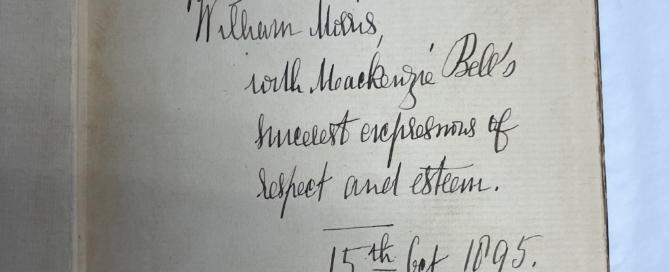 William Morris,
with Mackenzie Bell's
sincerest expressions of
respect and esteem.
15th Oct 1895.